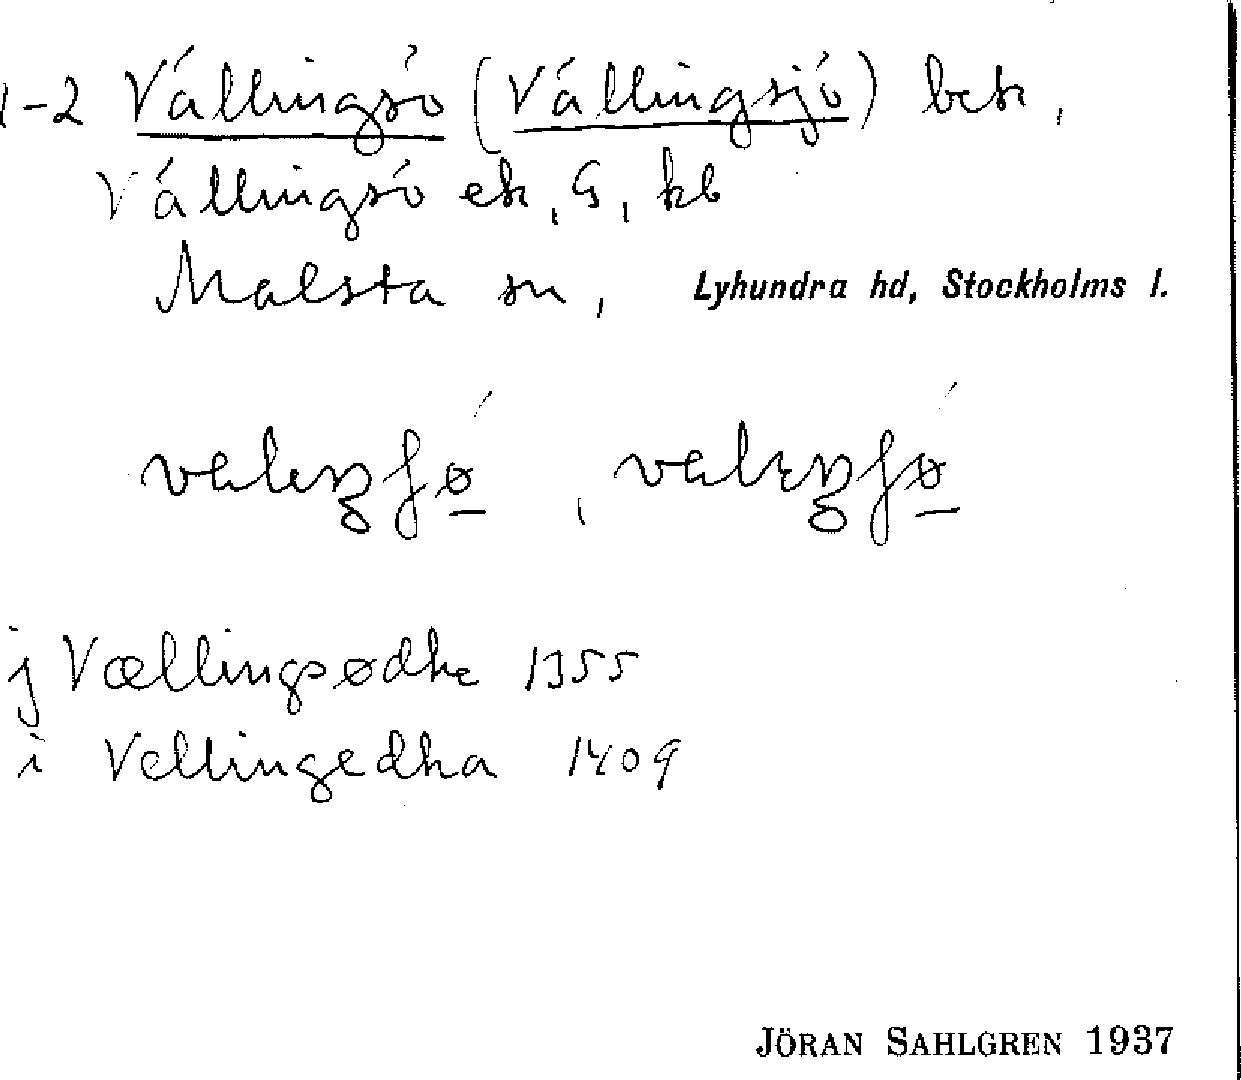 1-2 Vällingsö (Vällingsjö) bek,
Vällingsö ek, G, kb
Malsta sn, Lyhundra hd, Stockholms l.
j Vællingsødhe 1355
i Vellingedha 1409
JÖRAN SAHLGREN 1937